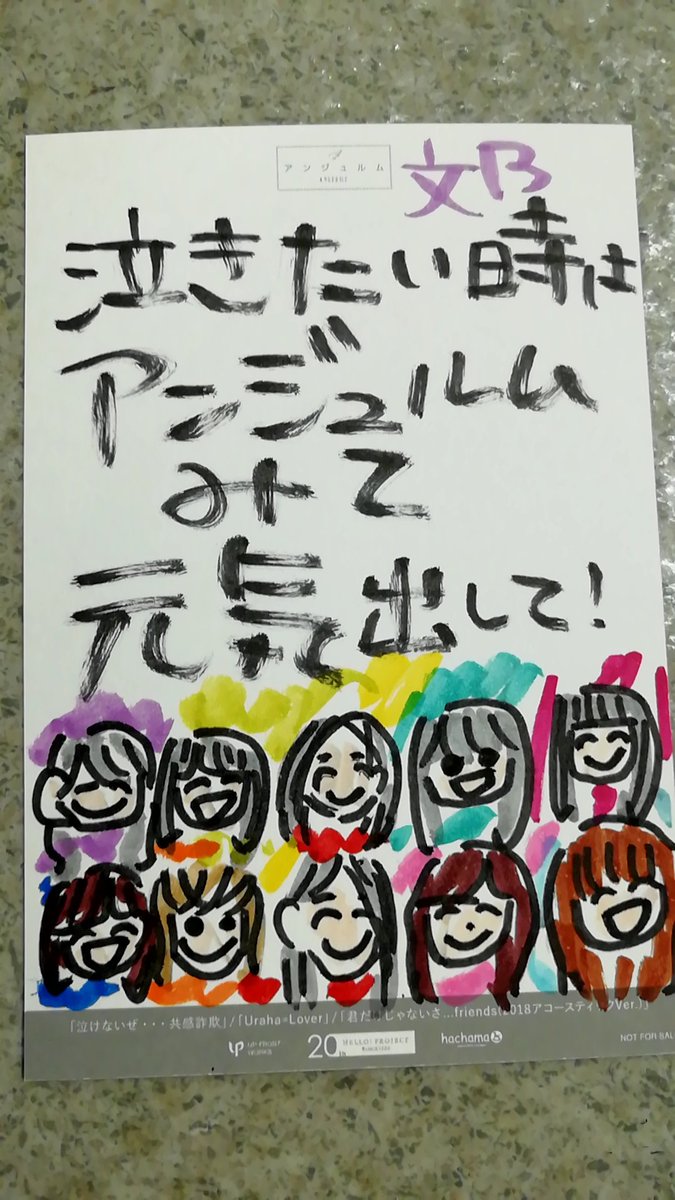 アンジュルム
ANGERME
文乃
泣きたい時は
アンジュルム
みて
元気出して!
「泣けないぜ・・・共感詐欺」/「Uraha=Lover」/「君だけじゃないさ...friends(2018アコースティックVer.)」
UP-FRONT WORKS
20th
HELLO! PROJECT
hachama
NOT FOR SAL